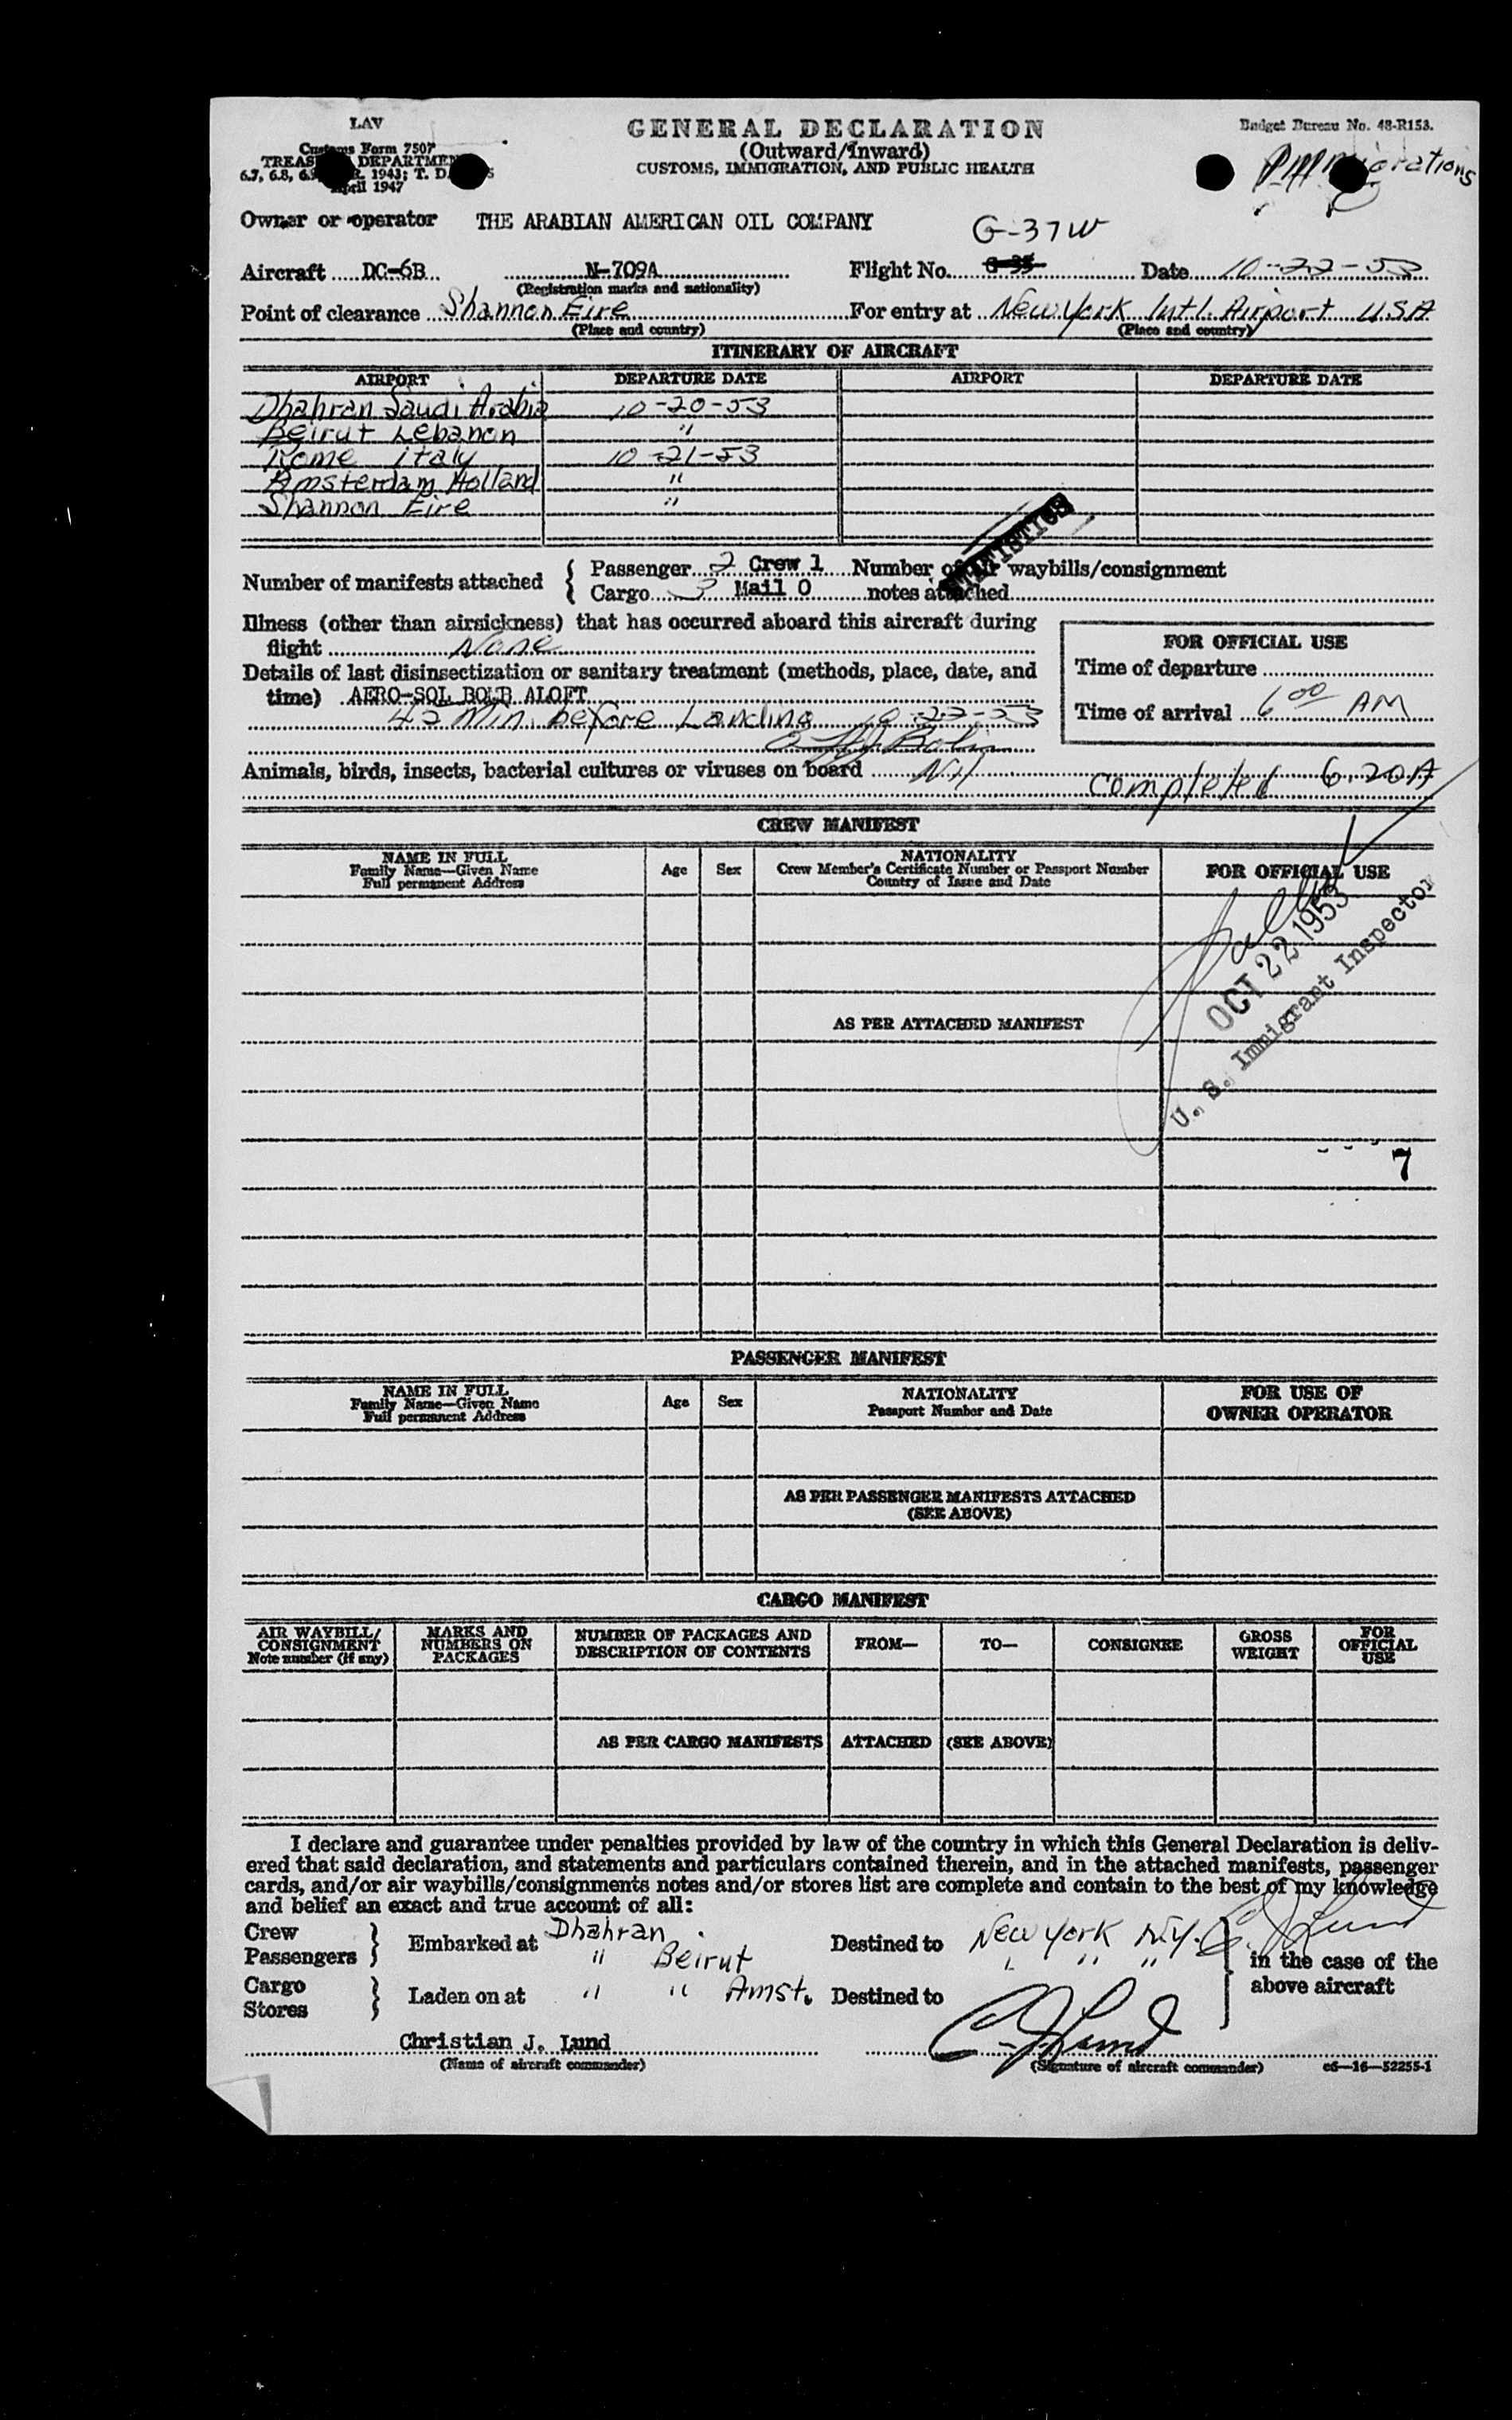 LAV
Customs Form 7507
TREAS DEPARTMEN
6.7, 6.8, 6.9 R. 1943; T. D.
April 1947
GENERAL DECLARATION
(Outward/Inward)
CUSTOMS, IMMIGRATION, AND PUBLIC HEALTH
Budget Bureau No. 48-R153.
Owner or operator THE ARABIAN AMERICAN OIL COMPANY
G-37W
Aircraft DC-6B N-709A Flight No. G-35 Date 10-22-53
(Registration marks and nationality)
Point of clearance Shannon Eire For entry at New York Int'l. Airport U.S.A
(Place and country) (Place and country)
ITINERARY OF AIRCRAFT
AIRPORT DEPARTURE DATE AIRPORT DEPARTURE DATE
Dhahran Saudi Arabia 10-20-53
Beirut Lebanon "
Rome Italy 10-21-53
Amsterdam Holland "
Shannon Eire "
STATISTICS
Number of manifests attached { Passenger 2 Crew 1 Number of air waybills/consignment
Cargo 3 Mail 0 notes attached
Illness (other than airsickness) that has occurred aboard this aircraft during
flight None
FOR OFFICIAL USE
Time of departure
Time of arrival 6 00 AM
Details of last disinsectization or sanitary treatment (methods, place, date, and
time) AERO-SOL BOMB ALOFT
42 Min. before Landing 10-22-53
Animals, birds, insects, bacterial cultures or viruses on board Nil
Completed 6.20A
CREW MANIFEST
NAME IN FULL
Family Name—Given Name
Full permanent Address
Age
Sex
NATIONALITY
Crew Member's Certificate Number or Passport Number
Country of Issue and Date
FOR OFFICIAL USE
OCT 22 1953
U. S. Immigrant Inspector
AS PER ATTACHED MANIFEST
7
PASSENGER MANIFEST
NAME IN FULL
Family Name—Given Name
Full permanent Address
Age
Sex
NATIONALITY
Passport Number and Date
FOR USE OF
OWNER OPERATOR
AS PER PASSENGER MANIFESTS ATTACHED
(SEE ABOVE)
CARGO MANIFEST
AIR WAYBILL/
CONSIGNMENT
Note number (if any)
MARKS AND
NUMBERS ON
PACKAGES
NUMBER OF PACKAGES AND
DESCRIPTION OF CONTENTS
FROM—
TO—
CONSIGNEE
GROSS
WEIGHT
FOR
OFFICIAL
USE
AS PER CARGO MANIFESTS ATTACHED (SEE ABOVE)
I declare and guarantee under penalties provided by law of the country in which this General Declaration is deliv-
ered that said declaration, and statements and particulars contained therein, and in the attached manifests, passenger
cards, and/or air waybills/consignments notes and/or stores list are complete and contain to the best of my knowledge
and belief an exact and true account of all:
Crew
Passengers } Embarked at Dhahran " Beirut Destined to New York N.Y. " " " C. J. Lund
in the case of the
above aircraft
Cargo
Stores } Laden on at " " Amst. Destined to
Christian J. Lund C. J. Lund
(Name of aircraft commander) (Signature of aircraft commander) c6—16—52255-1